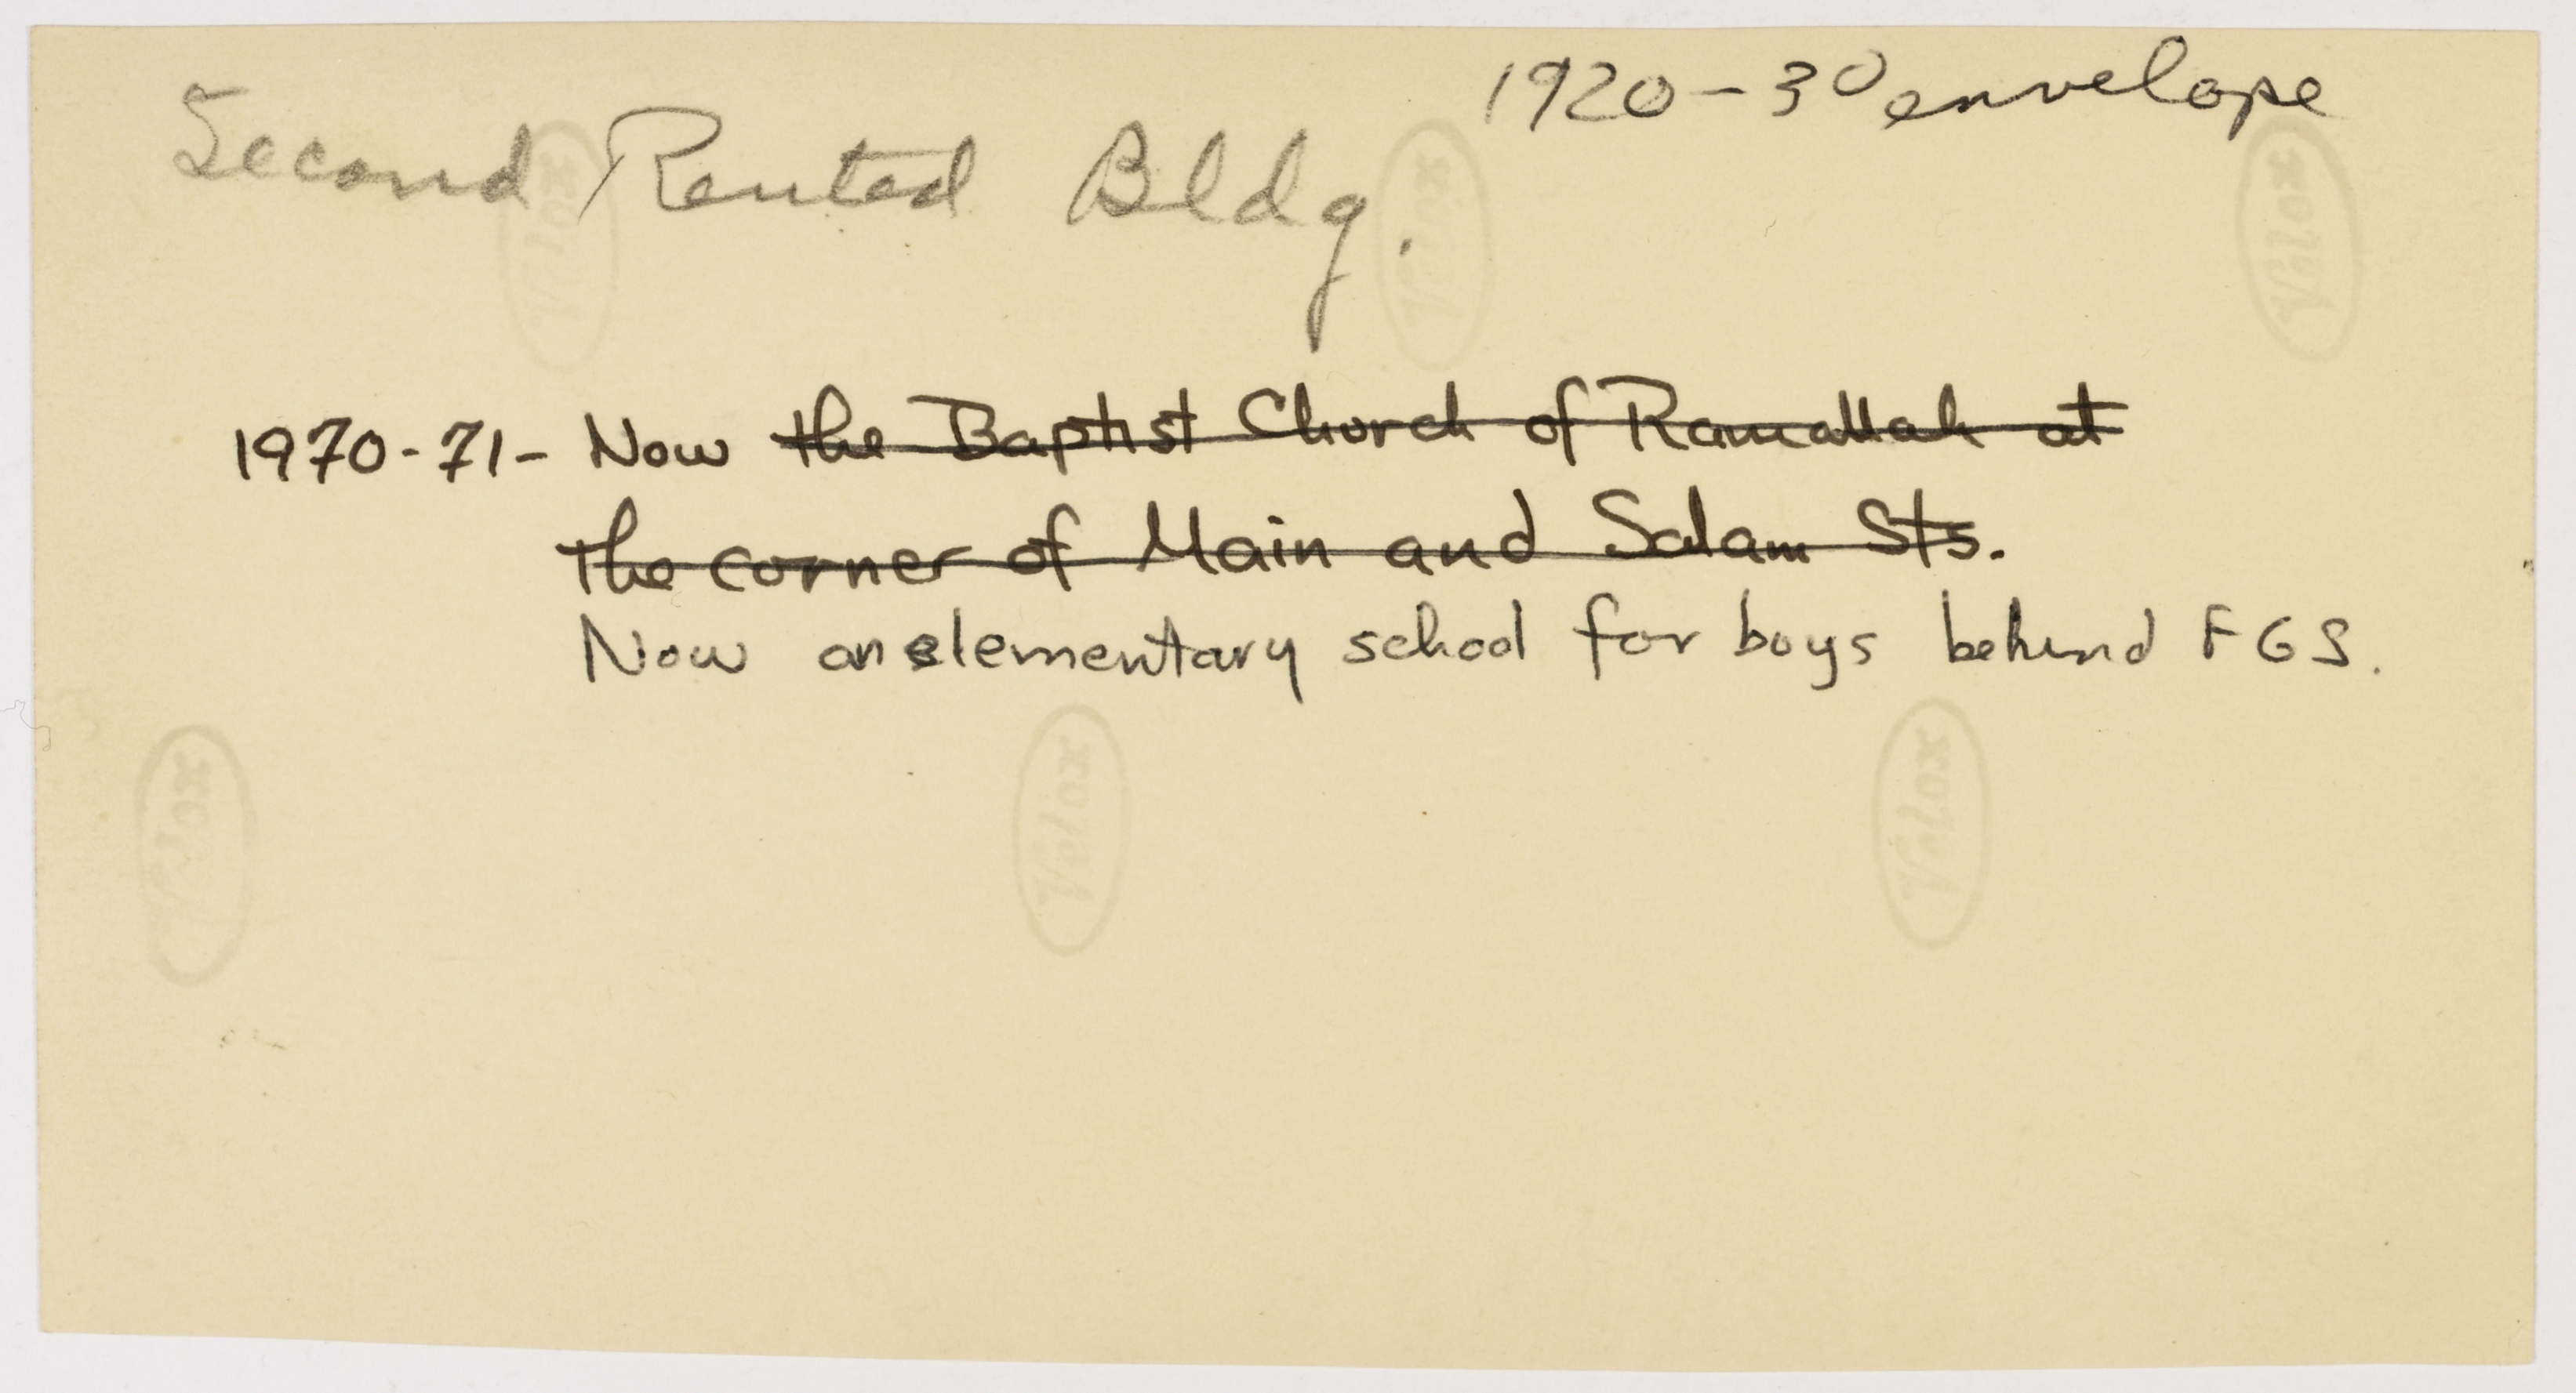 1920-30 envelope
Second Rented Bldg.
1970-71- Now the Baptist Church of Ramallah at
the corner of Main and Salam Sts.
Now an elementary school for boys behind FGS.
Velox
Velox
Velox
Velox
Velox
Velox